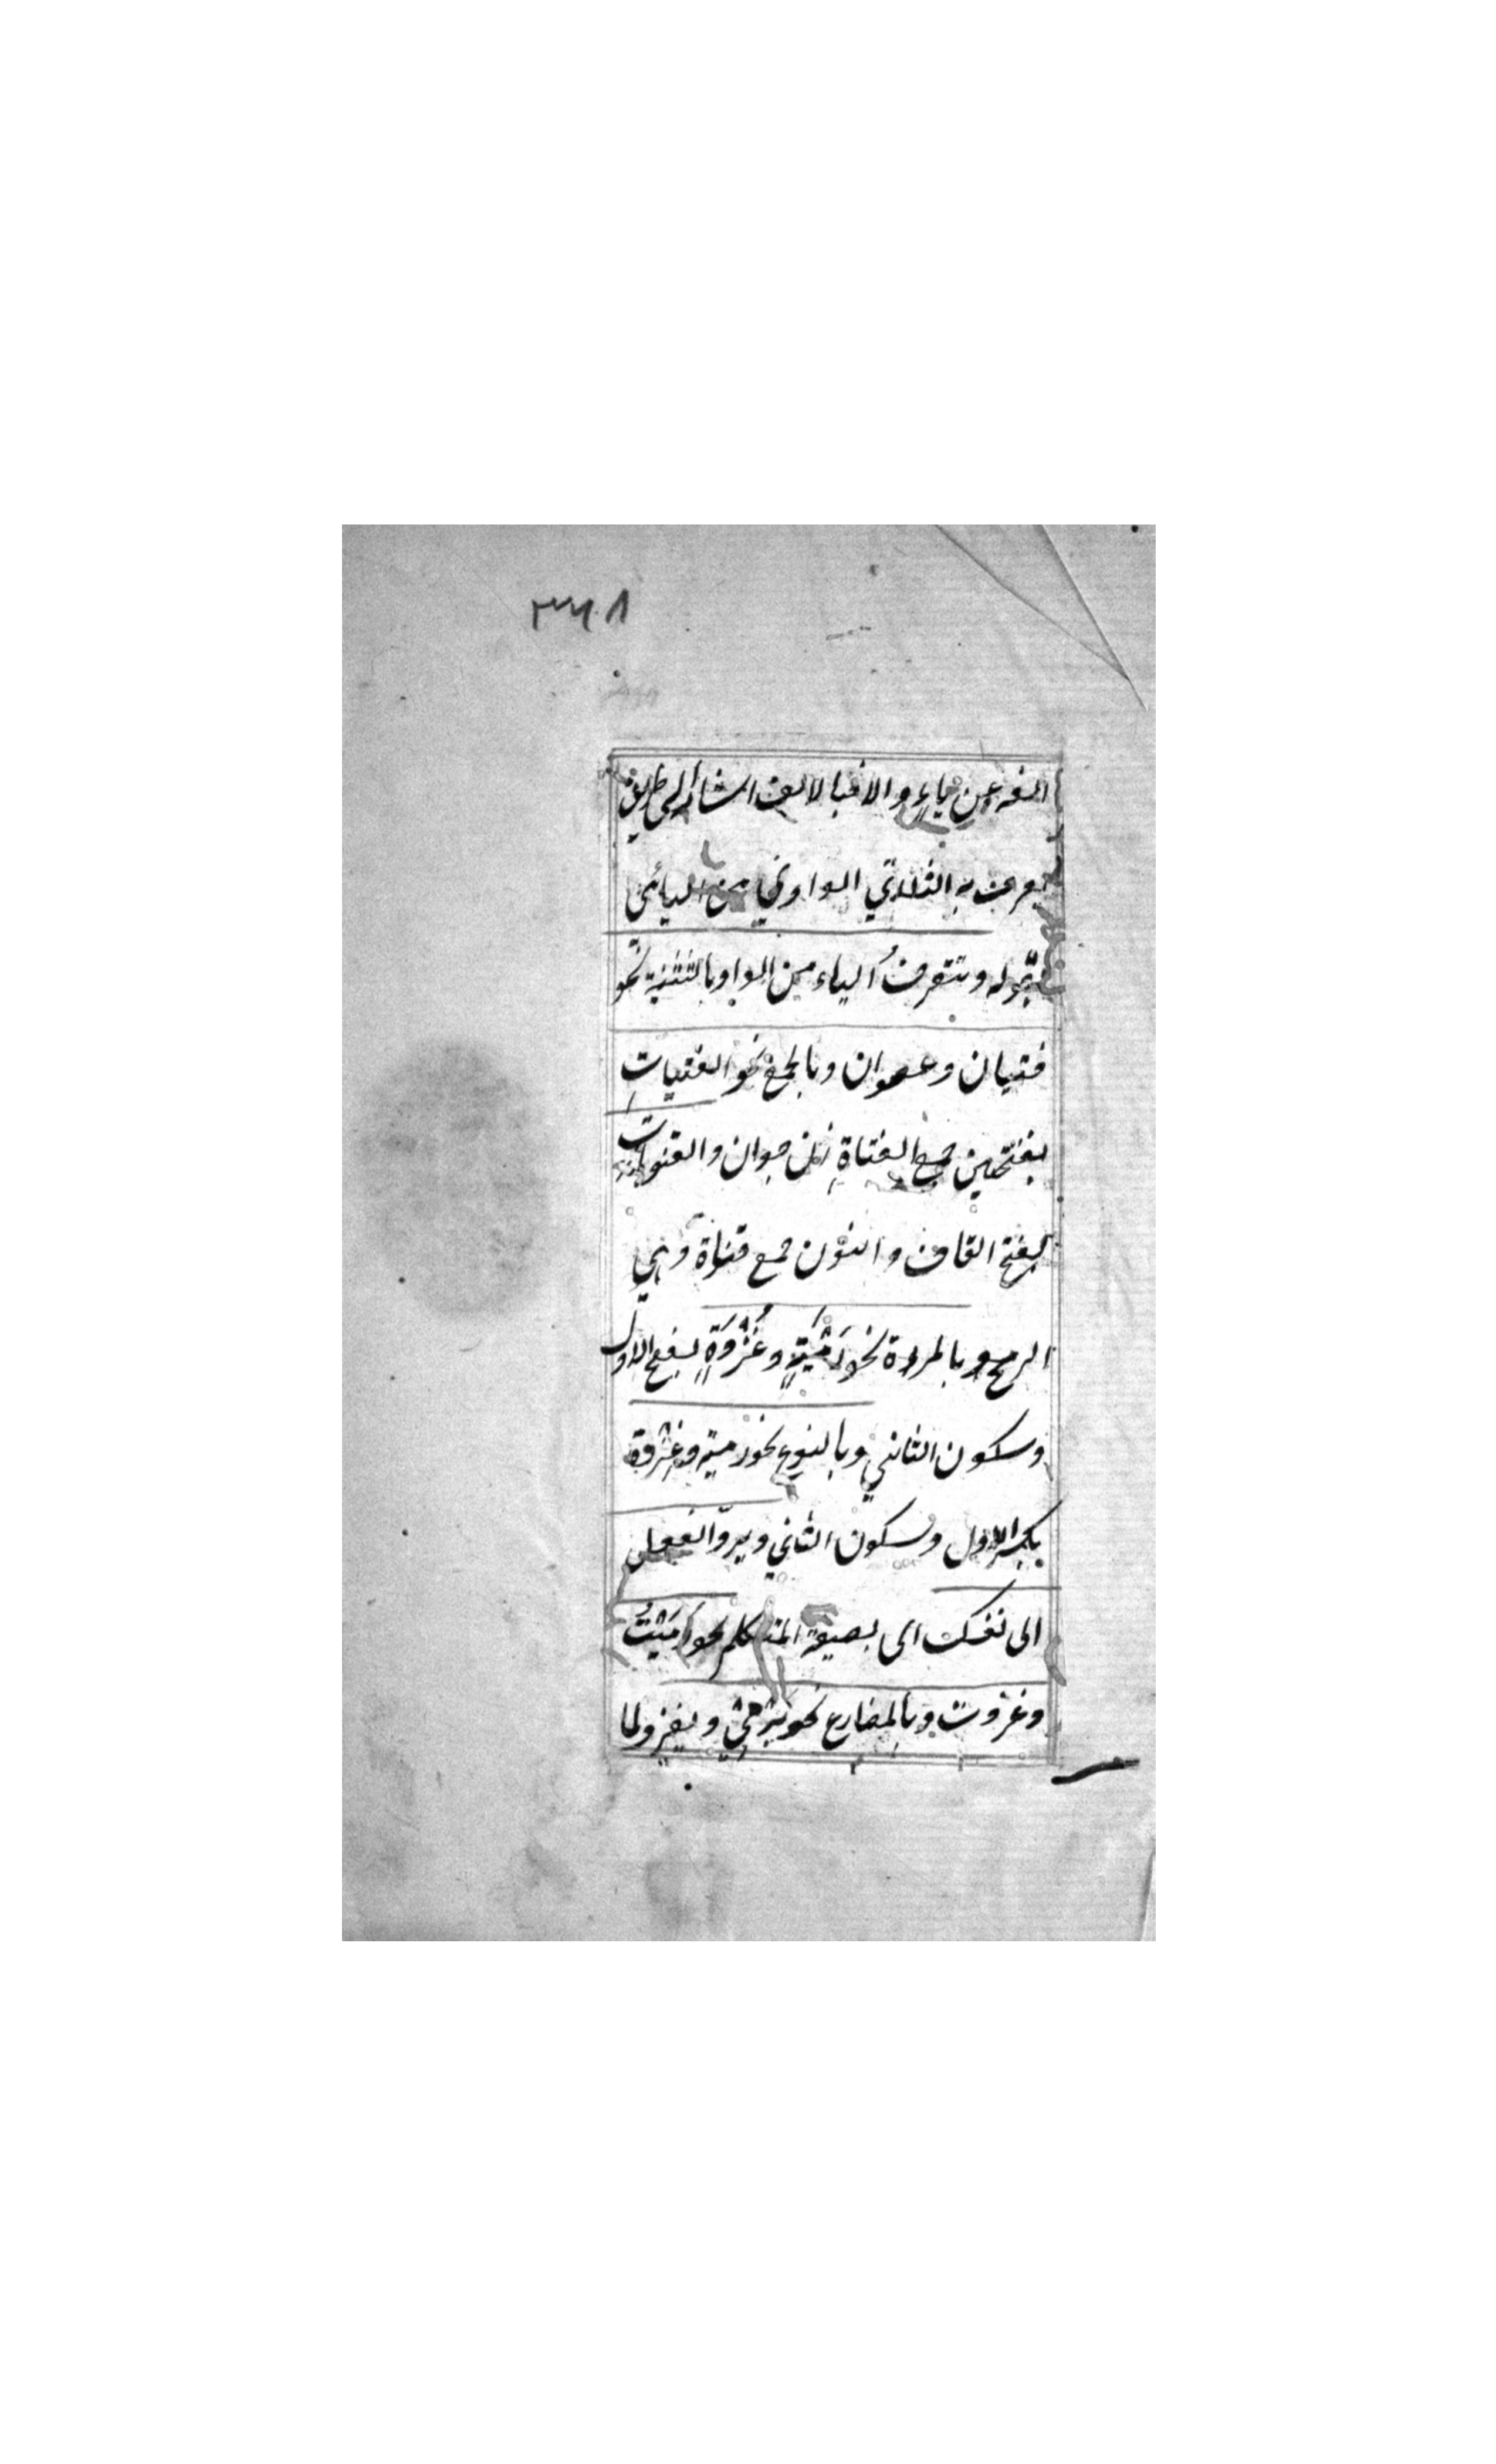 ٣٦٨
عن ياء والا فبا لالف اشار الى طريق
يعرف به الثلاثي الواوي من اليائي
بقوله ويتعرف الياء من الواو بالتثنية نحو
فتيان وعصوان وبالجمع نحو الفتيات
بفتحتين جمع الفتاة زن جوان والقنوات
بفتح القاف والنون جمع قناة وهي
الرمح وبالمرة نحو رَمْيَةٍ وغَزْوَةٍ بفتح الاول
وسكون الثاني وبالنوع نحو رمية وغزوة
بكسر الاول وسكون الثاني وبردّ الفعل
الى نفسك اى بصيغة المتكلم نحو رَمَيْتُ
وغزوت وبالمضارع نحو يَرْمِيْ ويغزو لما